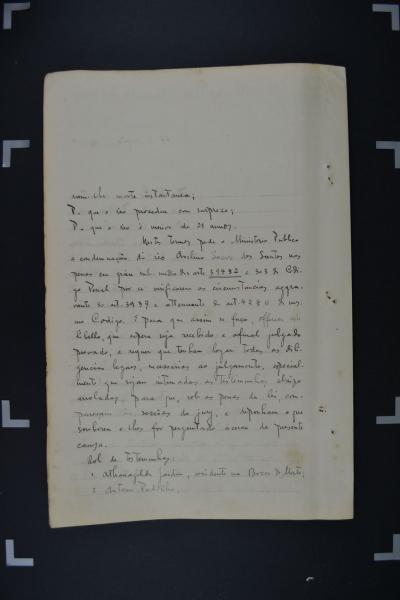 ram-lhe morte instantanea;
P. que o réo procedeu com surpreza;
P. que o réo é menor de 21 annos.
Nestes termos pede o Ministerio Publico
a condemnação do réo Anselmo dos Santos nas
penas em gráu médio dos arts. e 303 do Codi-
go Penal por se verificarem as circunstancias aggra-
vante do art. 39 § 7 e attenuante do art. 42 § 11 do mes-
mo Codigo. E para que assim se faça, offerece este
libello, que espera seja recebido e afinal julgado
provado, e requer que tenham logar todas as dili-
gencias legaes, necessarias ao julgamento, especial-
mente que sejam intimadas as testemunhas abaixo
arroladas, para que, sob as penas da lei, com-
pareçam sessões do jury, e deponham o que
souberem e lhes for perguntado ácerca da presente
causa.
Rol de testemunhas:
1 Jardim, residente na Bocca do Matto;
2 Antonio